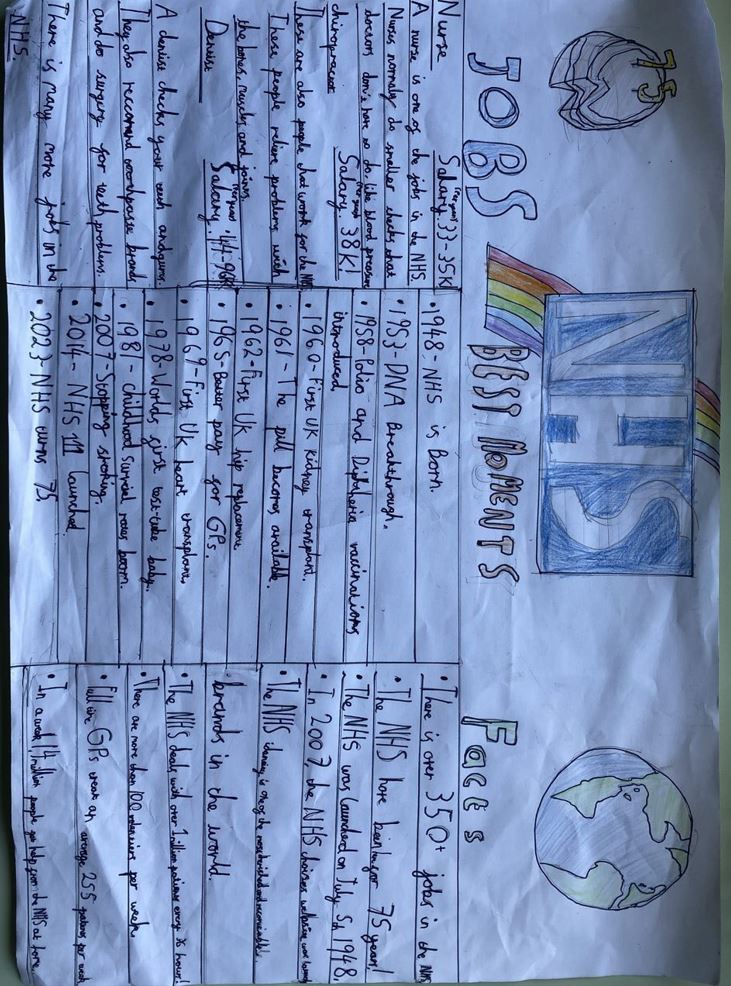 75
NHS
JOBS
Nurse
(Per year)
Salary: 33-35K!
A nurse is one of the jobs in the NHS.
Nurses normally do smaller checks that
doctors don't have to do, like blood pressure
chiropractor
(Per year)
Salary: 38K!
These are also people that work for the NHS
These people relieve problems with
the bones, muscles and joints.
Dentist
(Per year)
Salary: 44-96K!
A dentist checks your teeth and gums.
They also reccomend toothpaste brands
and do surgery for teeth problems.
There is many more jobs in the
NHS.
BEST MOMENTS
• 1948 - NHS is Born.
• 1953 - DNA Breakthrough.
• 1958 - Polio and Diphtheria vaccinations
introduced.
• 1960 - First UK kidney transplant.
• 1961 - The pill becomes available.
• 1962 - First UK hip replacement
• 1965 - Better pay for GPs.
• 1969 - First UK heart transplant.
• 1978 - Worlds first test-tube baby.
• 1981 - Childhood survival rates boom.
• 2007 - Stopping smoking.
• 2014 - NHS 111 launched.
• 2023 - NHS turns 75
Facts
• There is over 350+ jobs in the NHS
• The NHS have been for 75 years!
• The NHS was launched on July 5th 1948.
• In 2007, the NHS choices website was
• The NHS is one of the most and recognisable
brands in the world.
• The NHS deals with over 1 million patients every 36 hours!
• There are more than 100 per week.
• Full time GPs treat an average 255 patients per week
• In a week, 1.4 million people get help from the NHS at home.